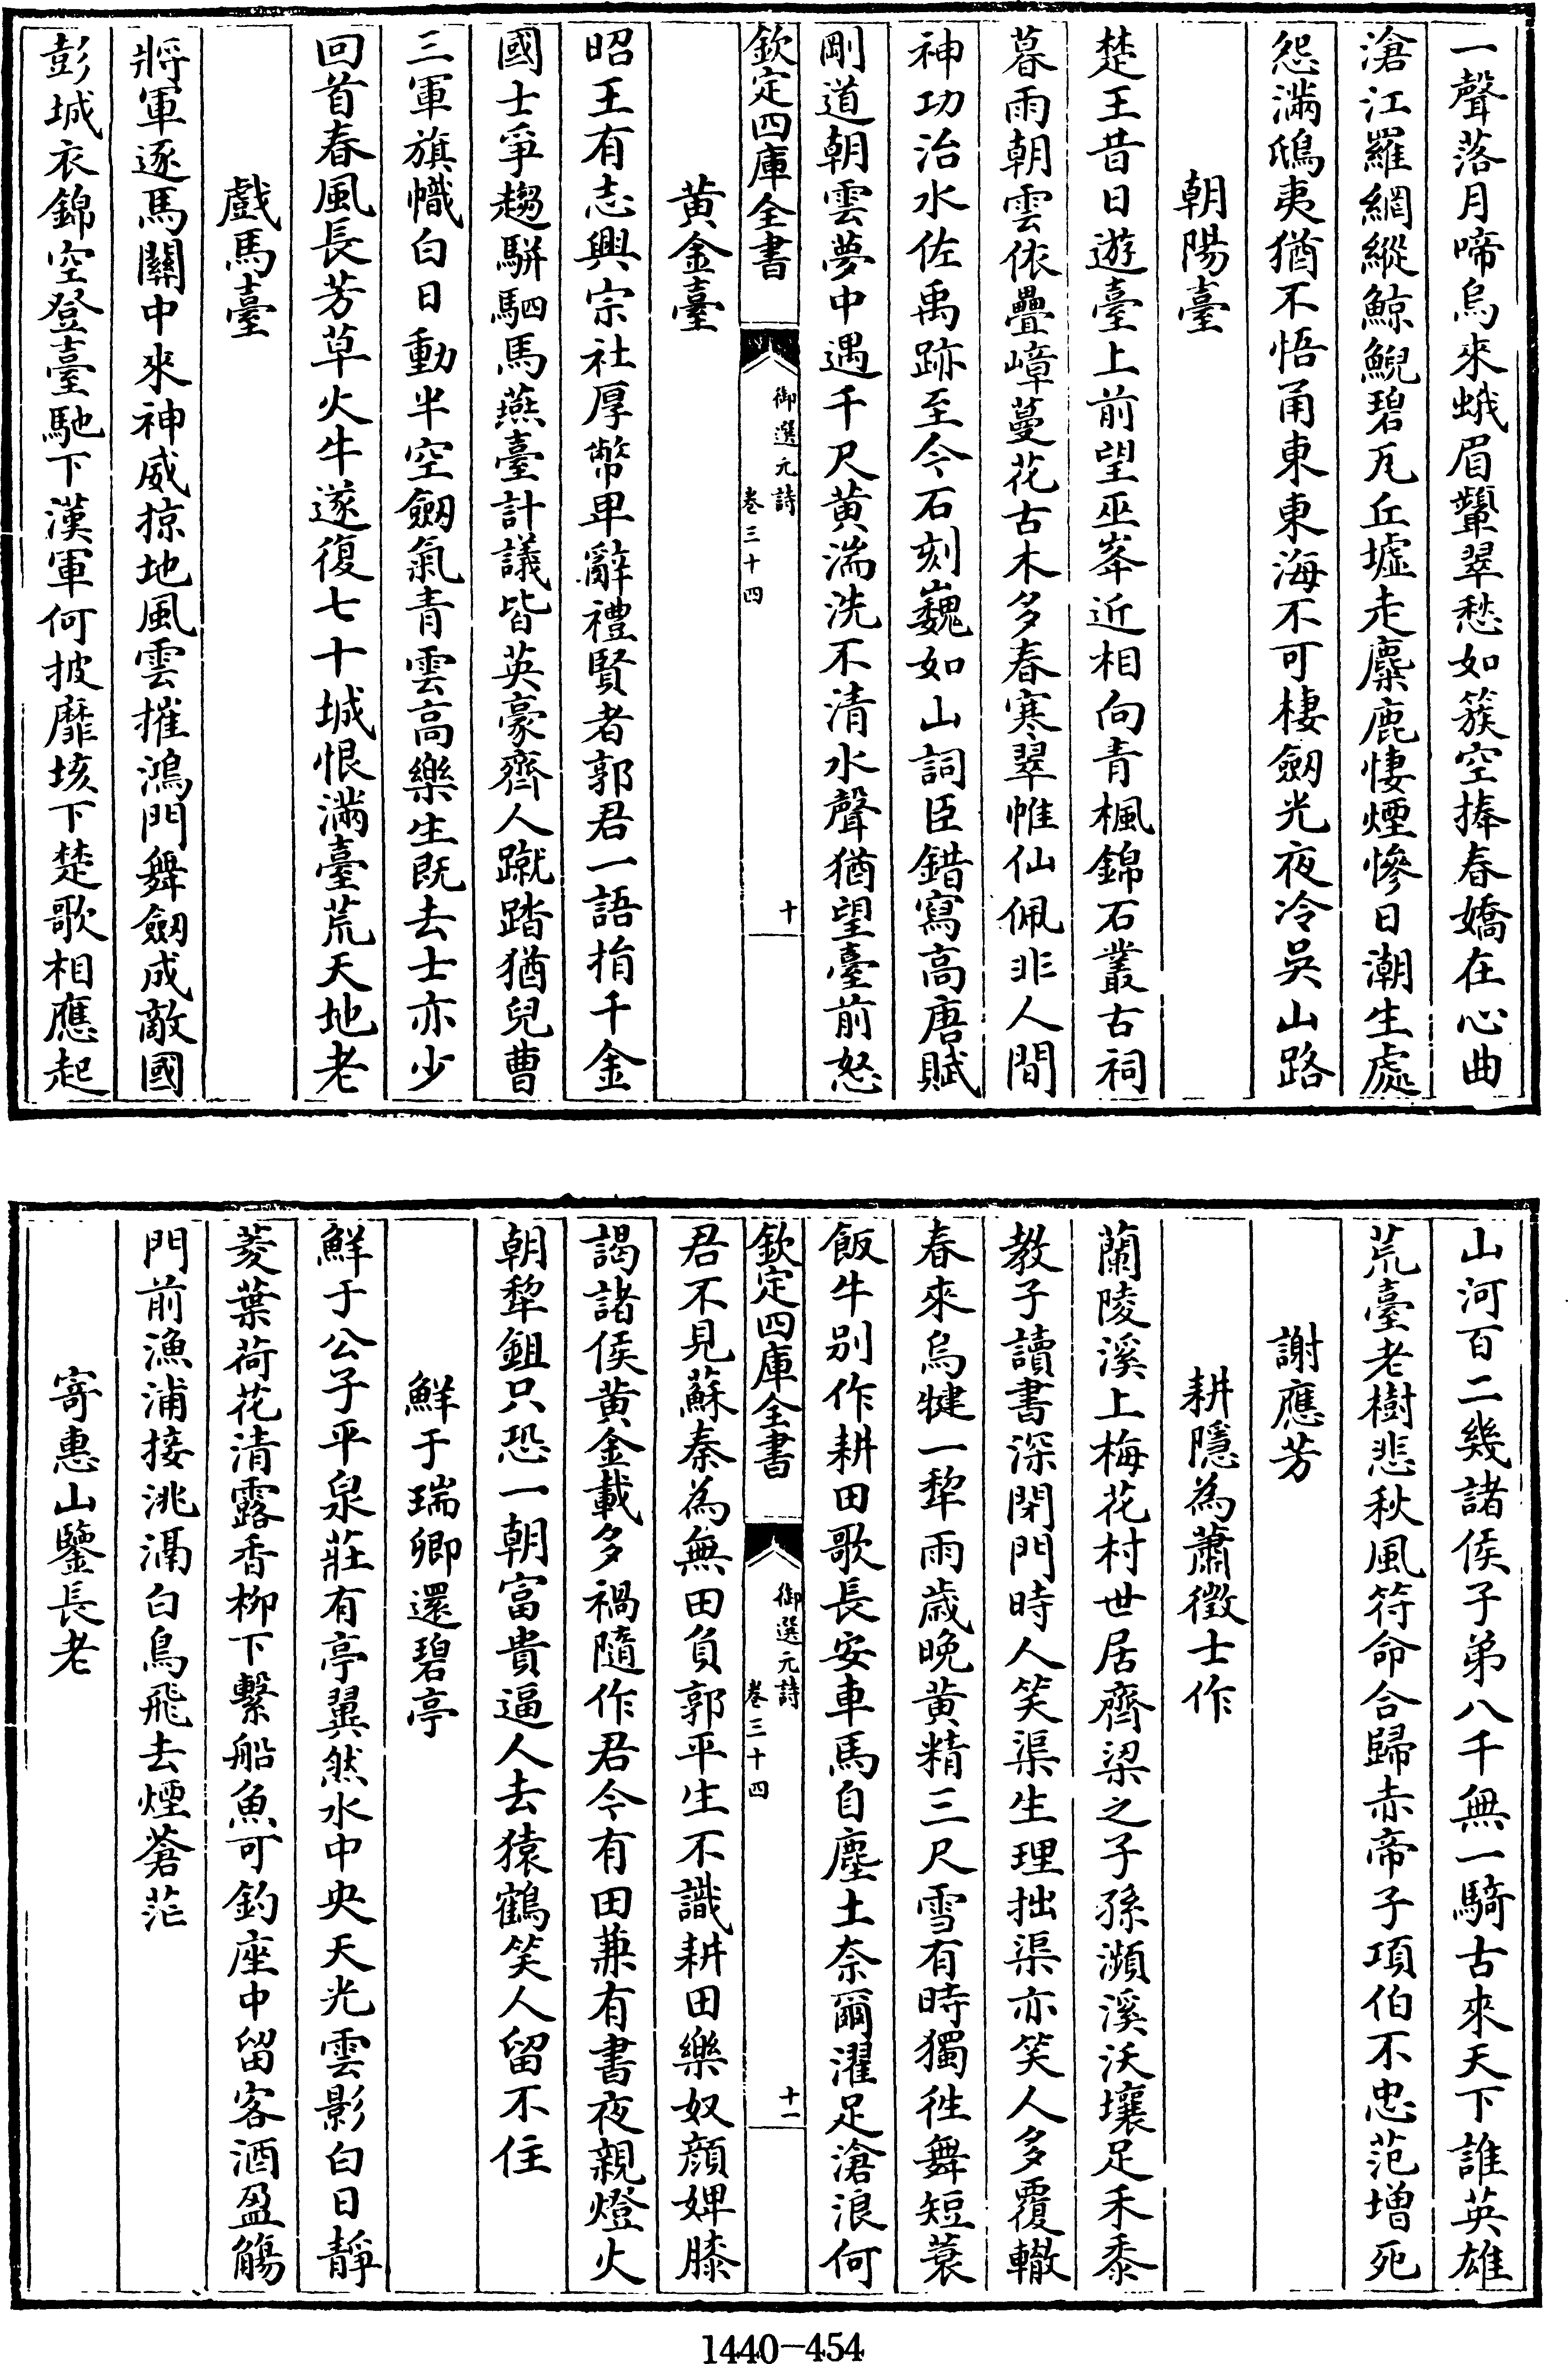 一聲落月啼烏來蛾眉顰翠愁如簇空捧春嬌在心曲
滄江羅網縱鯨鯢碧瓦丘墟走麋鹿悽煙慘日潮生處
怨滿鴟夷猶不悟甬東東海不可棲劒光夜冷吳山路
朝陽臺
楚王昔日遊臺上前望巫峯近相向青楓錦石叢古祠
暮雨朝雲依疊嶂蔓花古木多春寒翠帷仙佩非人間
神功治水佐禹跡至今石刻巍如山詞臣錯寫高唐賦
剛道朝雲夢中遇千尺黄湍洗不清水聲猶望臺前怒
欽定四庫全書
御選元詩
卷三十四
十
黄金臺
昭王有志興宗社厚幣卑辭禮賢者郭君一語捐千金
國士爭趨駢駟馬燕臺計議皆英豪齊人蹴踏猶兒曹
三軍旗幟白日動半空劒氣青雲高樂生既去士亦少
回首春風長芳草火牛遂復七十城恨滿臺荒天地老
戲馬臺
將軍逐馬關中來神威掠地風雲摧鴻門舞劒成敵國
彭城衣錦空登臺馳下漢軍何披靡垓下楚歌相應起
山河百二幾諸侯子弟八千無一騎古來天下誰英雄
荒臺老樹悲秋風符命合歸赤帝子項伯不忠范增死
謝應芳
耕隱為蕭徵士作
蘭陵溪上梅花村世居齊梁之子孫瀕溪沃壤足禾黍
教子讀書深閉門時人笑渠生理拙渠亦笑人多覆轍
春來烏犍一犂雨歲晚黄精三尺雪有時獨徃舞短蓑
飯牛别作耕田歌長安車馬自塵土奈爾濯足滄浪何
欽定四庫全書
御選元詩
卷三十四
十一
君不見蘇秦為無田負郭平生不識耕田樂奴顔婢膝
謁諸侯黄金載多禍隨作君今有田兼有書夜親燈火
朝犂鉏只恐一朝富貴逼人去猿鶴笑人留不住
鮮于瑞卿還碧亭
鮮于公子平泉莊有亭翼然水中央天光雲影白日靜
菱葉荷花清露香柳下繫船魚可釣座中留客酒盈觴
門前漁浦接洮滆白鳥飛去煙蒼茫
寄惠山鑒長老
1440-454